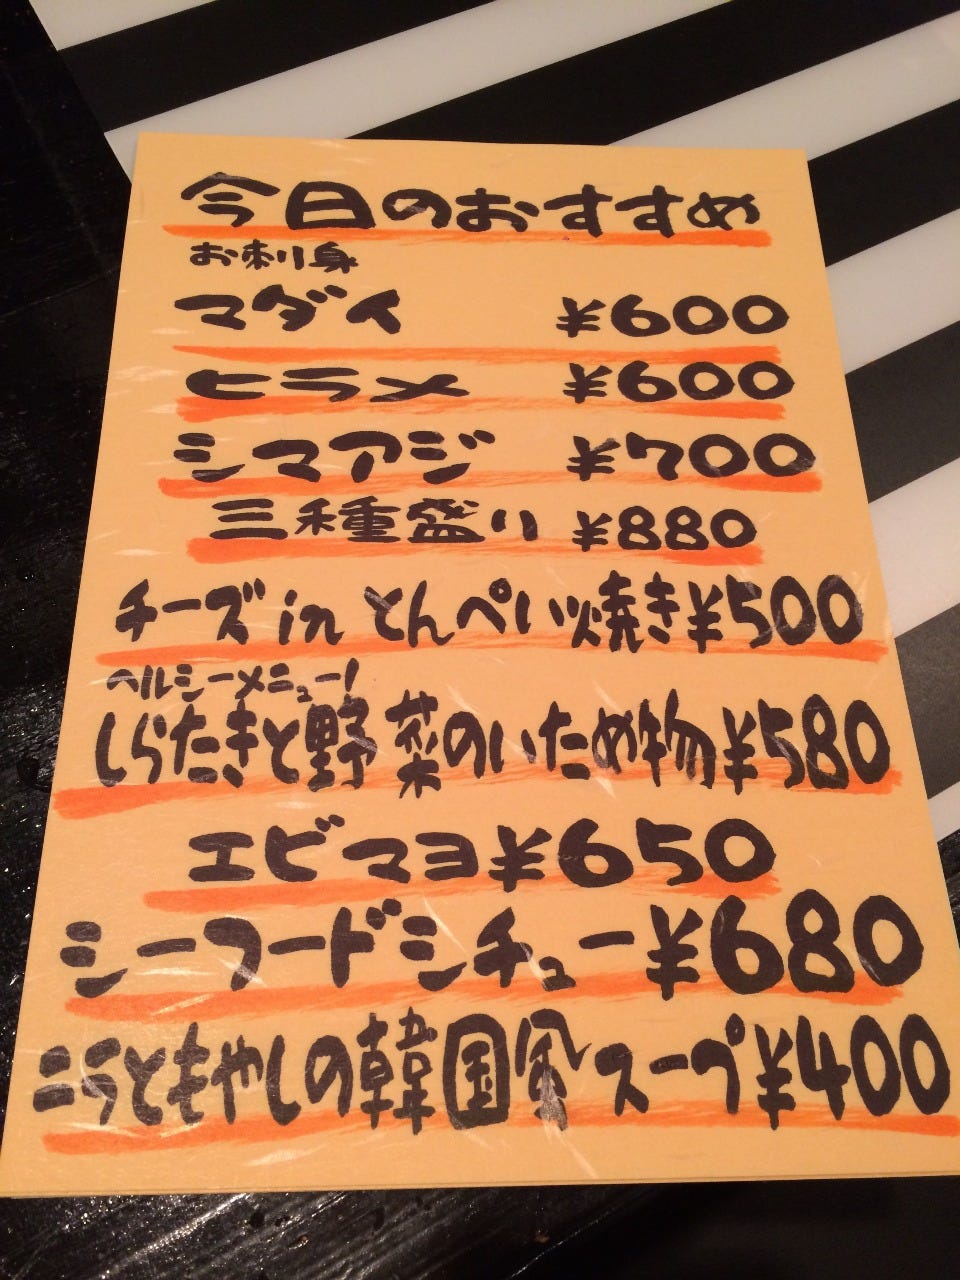 今日のおすすめ
お刺身
マダイ ¥600
ヒラメ ¥600
シマアジ ¥700
三種盛り ¥880
チーズin とんぺい焼き¥500
ヘルシーメニュー!
しらたきと野菜のいため物¥580
エビマヨ¥650
シーフードシチュー¥680
ニラともやしの韓国風スープ¥400